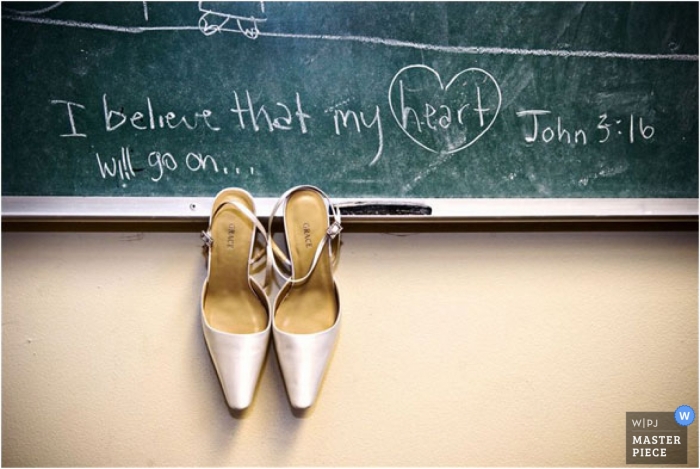 I believe that my heart John 3:16
will go on...
GRACE
GRACE
W
W|PJ
MASTER
PIECE